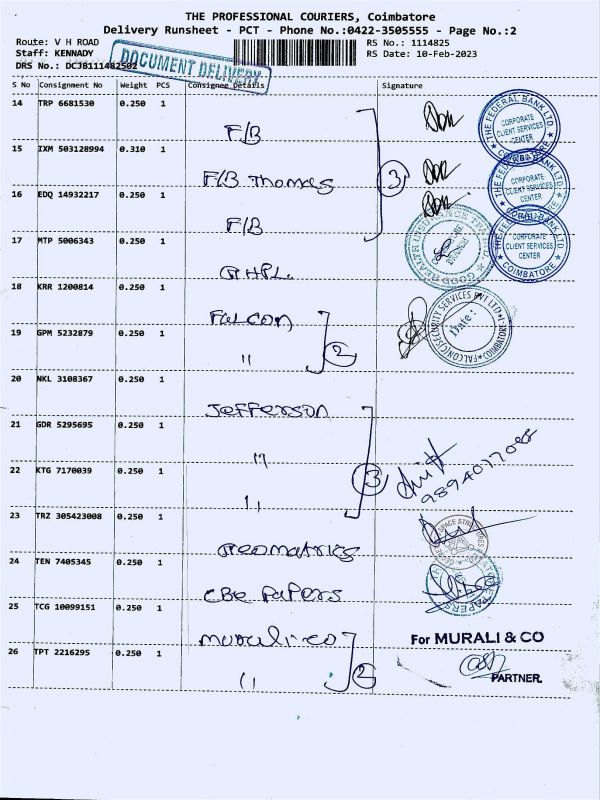 THE PROFESSIONAL COURIERS, Coimbatore
Delivery Runsheet - PCT - Phone No.:0422-3505555 - Page No.:2
Route: V H ROAD RS No.: 1114825
Staff: KENNADY RS Date: 10-Feb-2023
DRS No.: DCJB111482502
DOCUMENT DELIVERY
S No Consignment No Weight PCS Consignee Details Signature
14 TRP 6681530 0.250 1
F/B
THE FEDERAL BANK LTD. CORPORATE CLIENT SERVICES CENTER
15 IXM 503128994 0.310 1
F/B Thomas 3
THE FEDERAL BANK LTD. CORPORATE CLIENT SERVICES CENTER
16 EDQ 14932217 0.250 1
F/B
THE FEDERAL BANK LTD. CORPORATE CLIENT SERVICES CENTER COIMBATORE
17 MTP 5006343 0.250 1
GHPL.
GOOD HEALTH INSURANCE TPA LTD.
18 KRR 1200814 0.250 1
Falcon
FALCON SECURITY SERVICES PVT LTD COIMBATORE Date:
19 GPM 5232879 0.250 1
11 2
20 NKL 3108367 0.250 1
Jefferson
21 GDR 5295695 0.250 1
11
22 KTG 7170039 0.250 1
11 3
9894017088
23 TRZ 305423008 0.250 1
Geomatrics
SPACE STRUCTURES
24 TEN 7405345 0.250 1
CBE Papers
PAPERS
25 TCG 10099151 0.250 1
Murali-co
For MURALI & CO
26 TPT 2216295 0.250 1
11 2
PARTNER.